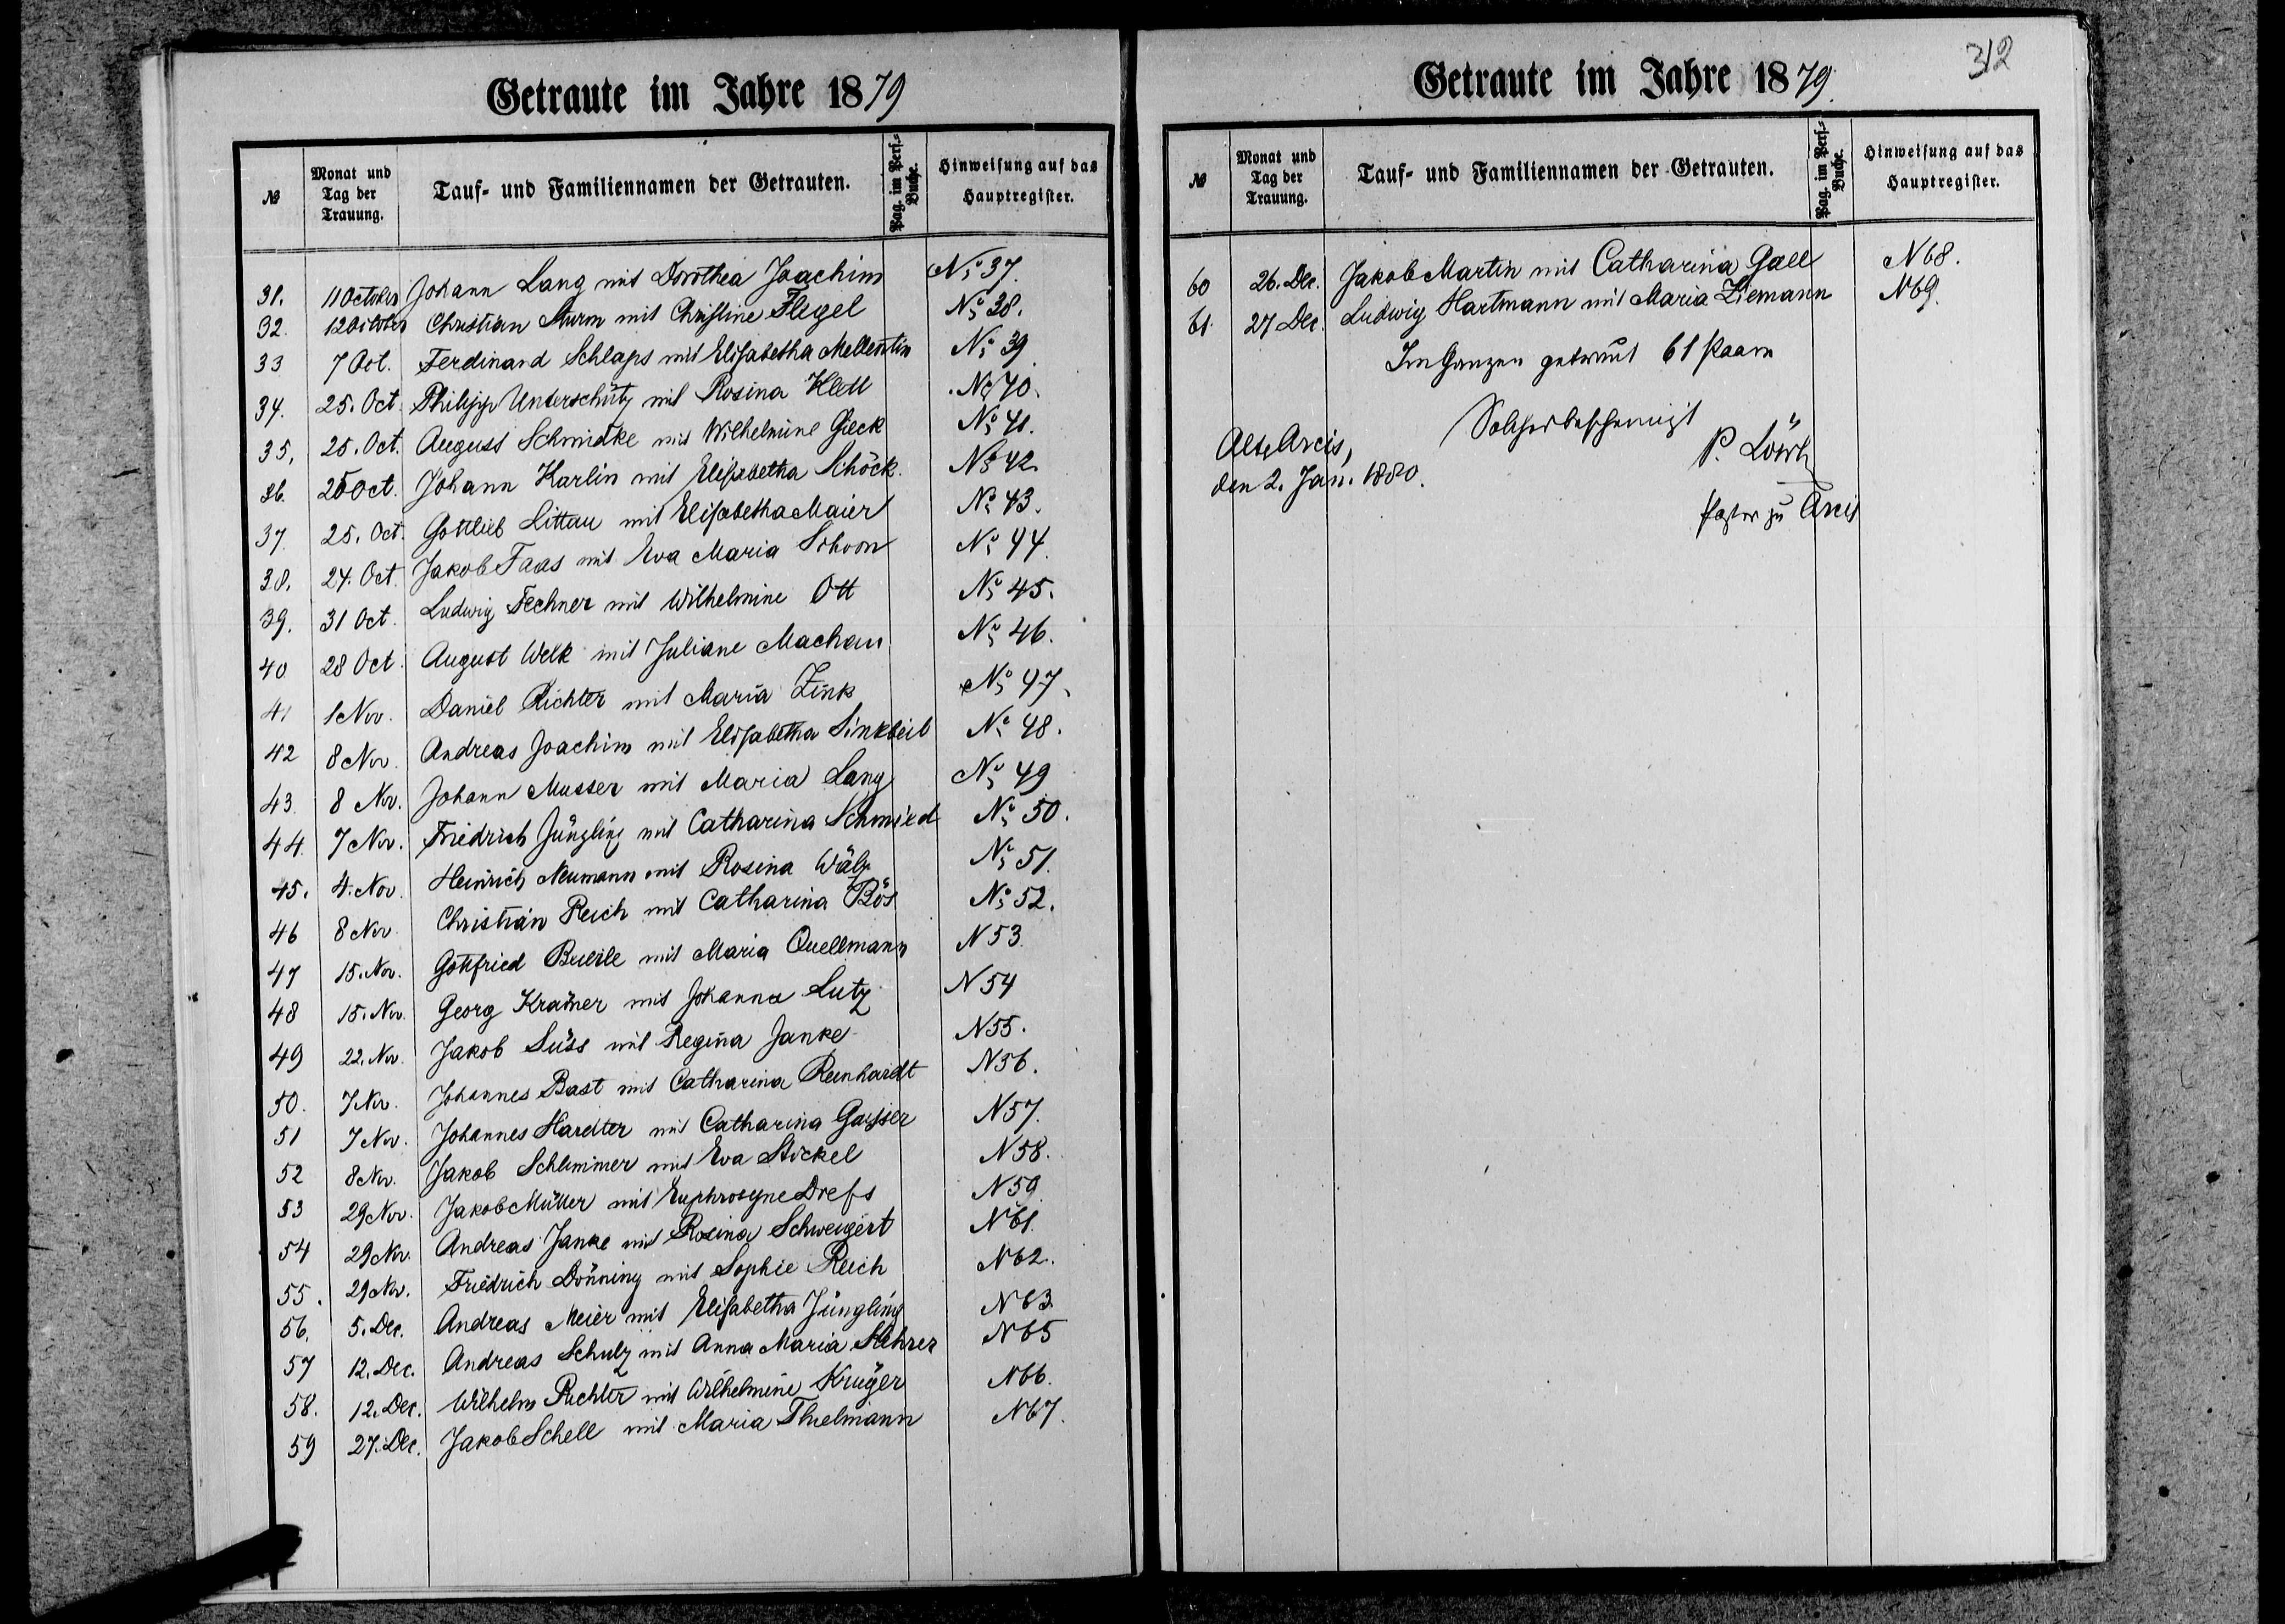 Getraute im Jahre 1879
№ Monat und Tag der Trauung. Tauf- und Familiennamen der Getrauten. Pag. im Pers.-Buche. Hinweisung auf das Hauptregister.
31. 11 October Johann Lang mit Dorothea Joachim No 37.
32. 12 October Christian Sturm mit Christine Flegel No 38.
33 7 Oct. Ferdinand Schlaps mit Elisabetha Mellentin No 39
34. 25. Oct. Philipp Unterschütz mit Rosina Klett No 40.
35. 25. Oct. August Schmidke mit Wilhelmine Gieck No 41.
36. 25 Oct. Johann Karlin mit Elisabetha Schöck No 42.
37. 25. Oct. Gottlieb Littau mit Elisabetha Maier No 43.
38. 24. Oct. Jakob Faas mit Eva Maria Schoon No 44.
39. 31 Oct. Ludwig Fechner mit Wilhelmine Ott No 45.
40 28 Oct. August Welk mit Juliane Machau No 46.
41 1 Nov. Daniel Richter mit Maria Zink No 47.
42 8 Nov. Andreas Joachim mit Elisabetha Sinkbeil No 48.
43. 8 Nov. Johann Musser mit Maria Lang No 49
44. 7 Nov. Friedrich Jüngling mit Catharina Schmied No 50.
45. 4. Nov. Heinrich Neumann mit Rosina Wälz No 51.
46 8 Nov. Christian Reich mit Catharina Bös No 52.
47 15. Nov. Gottfried Buerle mit Maria Quellmann N 53.
48 15. Nov. Georg Kramer mit Johanna Lutz N 54
49 22. Nov. Jakob Süss mit Regina Janke N 55.
50. 7 Nov. Johannes Bast mit Catharina Reinhardt N 56.
51 7 Nov. Johannes Hardter mit Catharina Gasser N 57.
52 8 Nov. Jakob Schlimmer mit Eva Stickel N 58.
53 29 Nov. Jakob Müller mit Euphrosyne Drefs N 59.
54 29 Nov. Andreas Janke mit Rosina Schweigert N 61.
55. 29 Nov. Friedrich Dönning mit Sophie Reich N 62.
56. 5. Dec. Andreas Meier mit Elisabetha Jüngling N 63.
57 12. Dec. Andreas Schulz mit Anna Maria N 65
58. 12. Dec. Wilhelm Richter mit Wilhelmine Krüger N 66.
59 27. Dec. Jakob Schell mit Maria Thielmann N 67.
312
Getraute im Jahre 1879.
№ Monat und Tag der Trauung. Tauf- und Familiennamen der Getrauten. Pag. im Pers.-Buche. Hinweisung auf das Hauptregister.
60 26. Dec. Jakob Martin mit Catharina Gall N 68.
61. 27 Dec. Ludwig Hartmann mit Maria Ziemann N 69.
Im Ganzen getraut 61 Paare
Solches bescheinigt
Alt Arcis,
den 2. Jan. 1880.
P. Lörch
Pastor zu Arcis